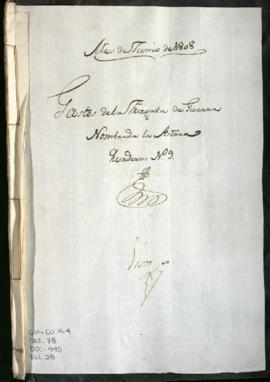 Mes de Junio de 1808
Gastos de la Fragata de Guerra
Nombrada la Astrea
Quaderno N.º 9.
GM-CO 44
CAJ. 78
DOC. 445
FOL. 28